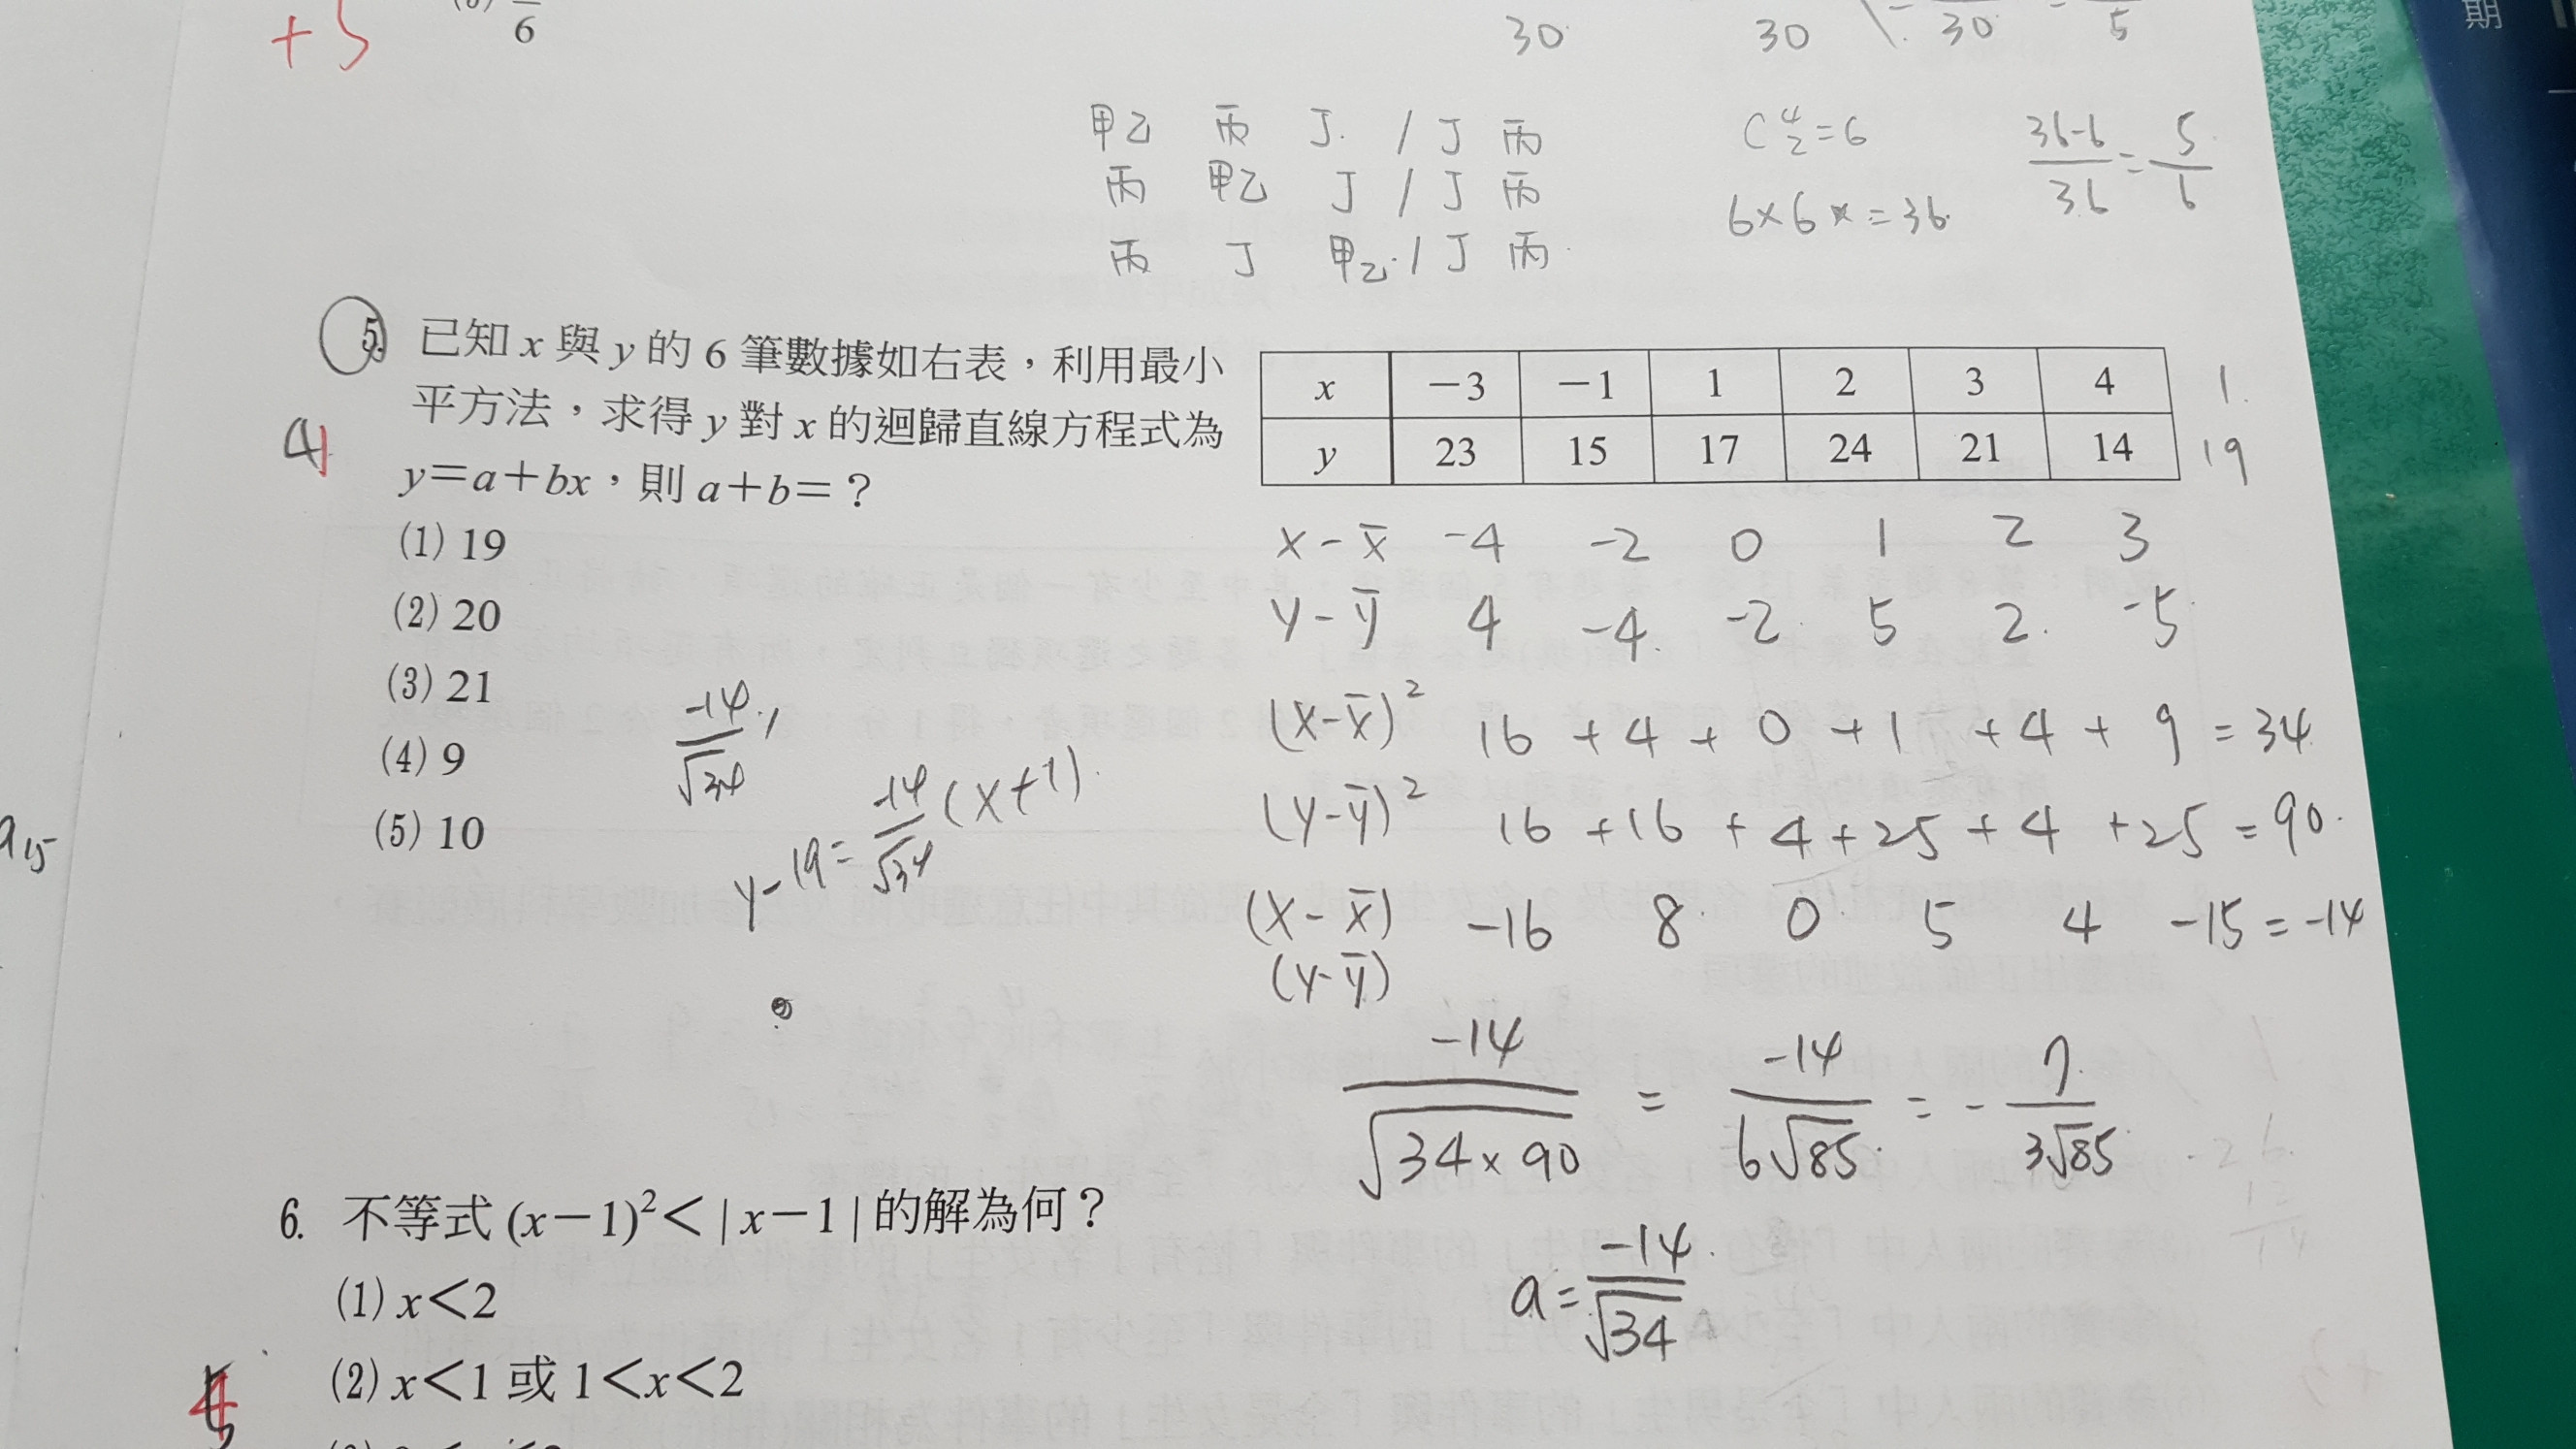 +5
6
30 30 30 5
期
甲乙 丙 丁 / 丁 丙
丙 甲乙 丁 / 丁 丙
丙 丁 甲乙 / 丁 丙
C 4 2 = 6
6×6 = 36
36-6 / 36 = 5 / 6
5. 已知 x 與 y 的 6 筆數據如右表，利用最小
平方法，求得 y 對 x 的迴歸直線方程式為
y＝a＋bx，則 a＋b＝？
x －3 －1 1 2 3 4 1.
y 23 15 17 24 21 14 19
(1) 19
(2) 20
(3) 21
(4) 9
(5) 10
x - x̄ -4 -2 0 1 2 3
y - ȳ 4 -4 -2 5 2 -5
(x-x̄)² 16 + 4 + 0 + 1 + 4 + 9 = 34
(y-ȳ)² 16 + 16 + 4 + 25 + 4 + 25 = 90
(x-x̄) -16 8 0 5 4 -15 = -14
(y-ȳ)
-14 / √34
y-19 = -14/√34 (x+1)
-14 / √34×90 = -14 / 6√85 = - 7 / 3√85
a = -14 / √34
6. 不等式 (x－1)²＜| x－1 | 的解為何？
(1) x＜2
(2) x＜1 或 1＜x＜2